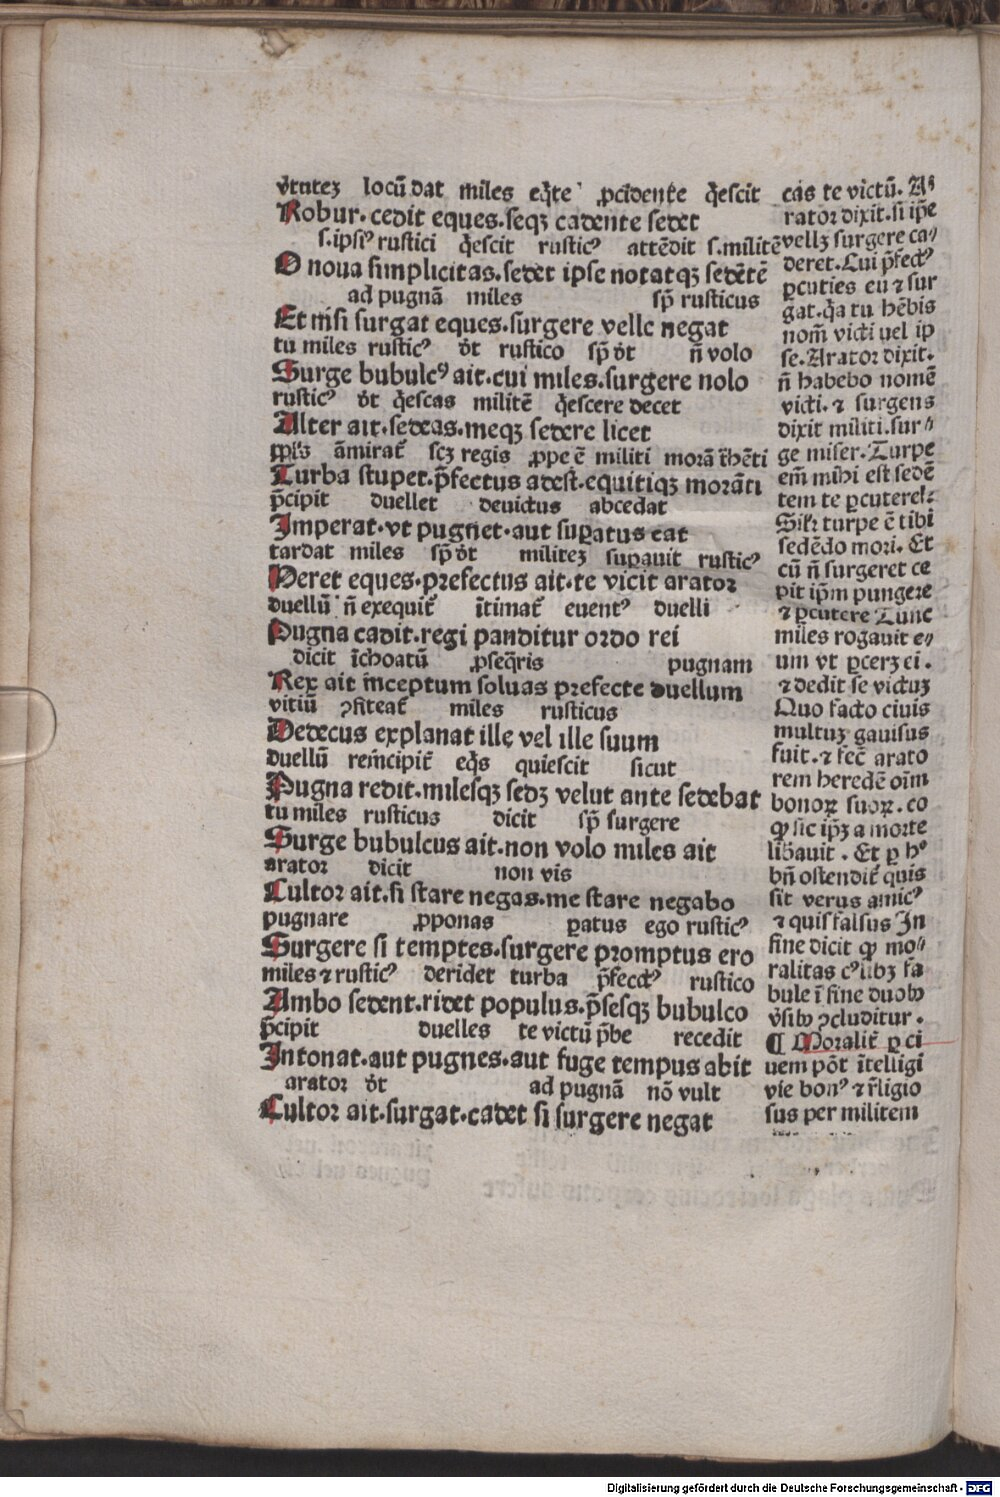 v̓tutez locū dat miles eq̄te ꝓcidente q̄escit
Robur. cedit eques. seqꝫ cadente sedet
s. ipsiꝰ rustici q̄escit rusticꝰ attēdit s. militē
O noua simplicitas. sedet ipse notatqꝫ sedētē
ad pugnā miles sꝑ rusticus
Et nisi surgat eques. surgere velle negat
tu miles rusticꝰ d̓t rustico sꝑ d̓t n̄ volo
Surge bubulcꝰ ait. cui miles. surgere nolo
rusticꝰ d̓t q̄escas militē q̄escere decet
Alter ait. sedeas. meqꝫ sedere licet
āmirat̄ scꝫ regis ꝓpe ē militi morā
Turba stupet. p̄fectus adest. equitiqꝫ morāti
p̄cipit duellet deuictus abcedat
Imperat. vt pugnet. aut suꝑatus eat
tardat miles sꝑ d̓t militeꝫ suꝑauit rusticꝰ
Heret eques. prefectus ait. te vicit arator
duellū n̄ exequit̄ ītimat̄ euentꝰ duelli
Pugna cadit. regi panditur ordo rei
dicit īchoatū ꝓseq̄ris pugnam
Rex ait inceptum soluas prefecte duellum
vitiū ꝯfiteat̄ miles rusticus
Dedecus explanat ille vel ille suum
duellū reīncipit̄ eq̄s quiescit sicut
Pugna redit. milesqꝫ sedꝫ velut ante sedebat
tu miles rusticus dicit sꝑ surgere
Surge bubulcus ait. non volo miles ait
arator dicit non vis
Cultor ait. si stare negas. me stare negabo
pugnare ꝓponas ꝑatus ego rusticꝰ
Surgere si temptes. surgere promptus ero
miles ⁊ rusticꝰ deridet turba p̄fectꝰ rustico
Ambo sedent. ridet populus. p̄sesqꝫ bubulco
p̄cipit duelles te victū p̄be recedit
Intonat. aut pugnes. aut fuge tempus abit
arator d̓t ad pugnā nō vult
Cultor ait. surgat. cadet si surgere negat
cas te victū. Aꝰ
rator dixit. si ip̄e
vellꝫ surgere ca⸗
deret. Cui p̄fectꝰ
ꝑcuties eū ⁊ sur
gat. q̄a tu hēbis
nom̄ victi uel ip
se. Arator dixit.
n̄ habebo nomē
victi. ⁊ surgens
dixit militi. sur⸗
ge miser. Turpe
em̄ mihi est sedē
tem te ꝑcutere
Sil̄r turpe ē tibi
sedēdo mori. Et
cū n̄ surgeret ce
pit ip̄m pungere
⁊ ꝑcutere Tunc
miles rogauit e⸗
um vt ꝑcerꝫ ei.
⁊ dedit se victuꝫ
Quo facto ciuis
multuꝫ gauisus
fuit. ⁊ fec̄ arato
rem heredē oīm
bonoꝝ suoꝝ. eo
ꝙ sic ip̄ꝫ a morte
lib̄auit. Et ꝑ hꝰ
bn̄ ostendit̄ quis
sit verus amicꝰ
⁊ quis falsus In
fine dicit ꝙ mo⸗
ralitas cꝰlibꝫ fa
bule ī fine duobꝰ
v̓sibꝰ ꝯcluditur.
¶ Moralit̄ ꝑ ci
uem pōt ītelligi
vie bonꝰ ⁊ r̄ligio
sus per militem
Digitalisierung gefördert durch die Deutsche Forschungsgemeinschaft - DFG